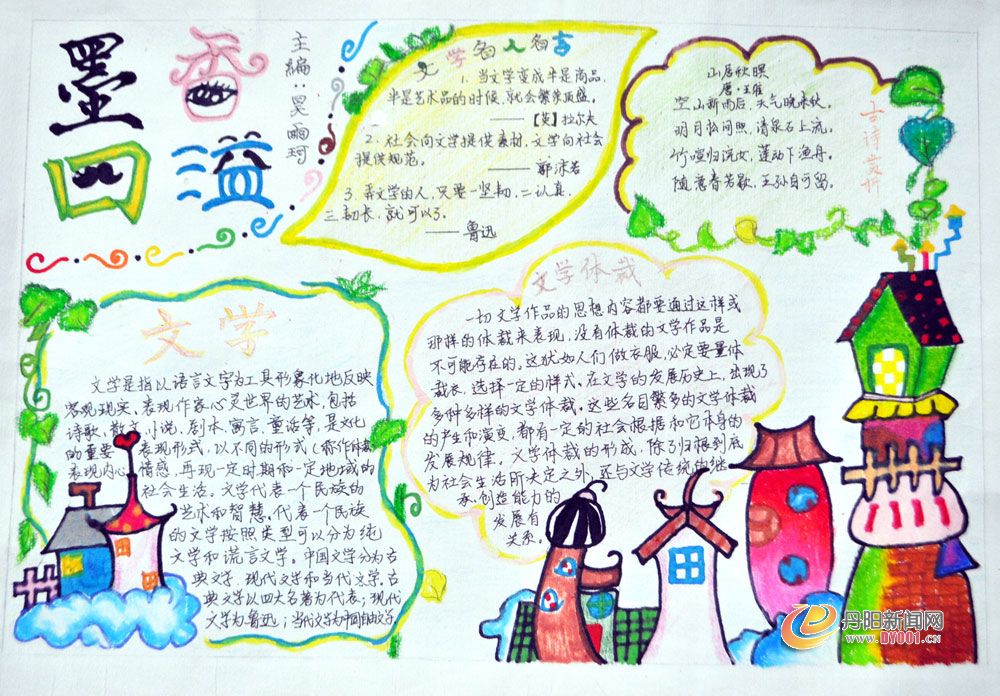 墨香
四溢
主编：吴唧珂
文学名人名言
1. 当文学变成半是商品，
半是艺术品的时候，就会繁荣顶盛。
——【英】拉尔夫
2. 社会向文学提供素材，文学向社会
提供规范。
——郭沫若
3. 弄文学的人，只要一坚韧，二认真，
三韧长，就可以了。
——鲁迅
古诗赏析
山居秋暝
唐·王维
空山新雨后，天气晚来秋。
明月松间照，清泉石上流。
竹喧归浣女，莲动下渔舟。
随意春芳歇，王孙自可留。
文学
文学是指以语言文字为工具形象化地反映
客观现实、表现作家心灵世界的艺术，包括
诗歌、散文、小说、剧本、寓言、童话等，是文化
的重要表现形式，以不同的形式（称作体裁）
表现内心情感，再现一定时期和一定地域的
社会生活。文学代表一个民族的
艺术和智慧，代表一个民族
的文学按照类型可以分为纯
文学和谎言文学。中国文学分为古
典文学、现代文学和当代文学。古
典文学以四大名著为代表；现代
文学为鲁迅；当代文学为中国自由文学
文学体裁
一切文学作品的思想内容都要通过这样或
那样的体裁来表现，没有体裁的文学作品是
不可能存在的。这犹如人们做衣服，必定要量体
裁衣，选择一定的样式。在文学的发展历史上，出现了
多种多样的文学体裁。这些名目繁多的文学体裁
的产生和演变，都有一定的社会根据和它本身的
发展规律。文学体裁的形成，除了归根到底
为社会生活所决定之外，还与文学传统的继
承创造能力的
发展有
关系。
丹阳新闻网
WWW.DY001.CN